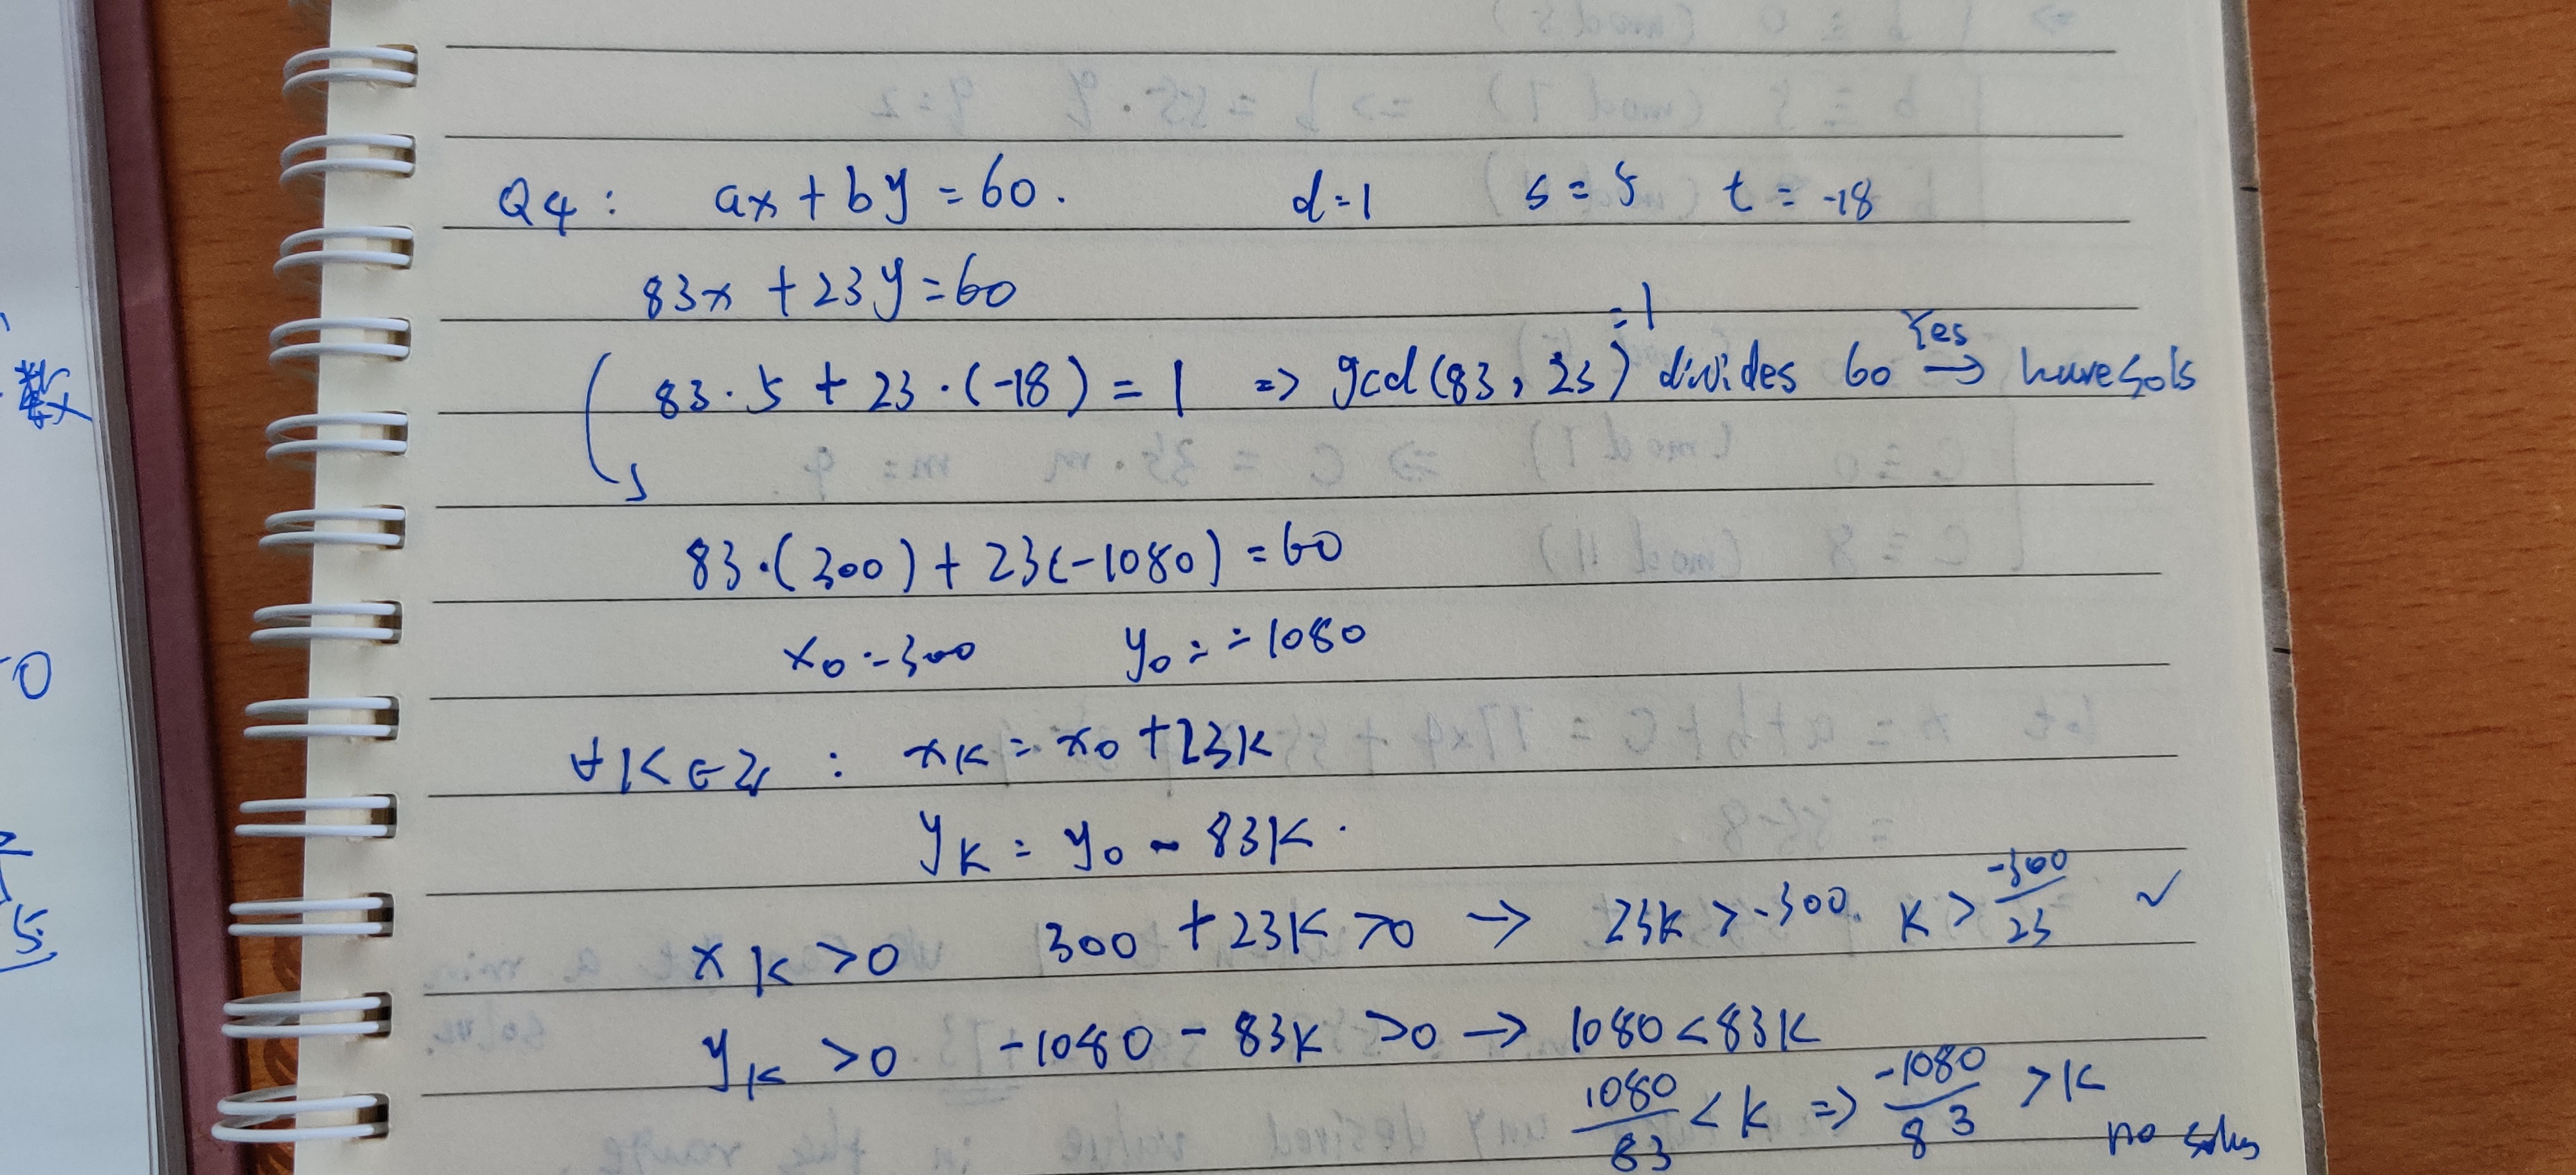 数
Q4 : ax + by = 60. d=1 s=5 t=-18
83x + 23y = 60
83·5 + 23·(-18) = 1 => gcd(83, 23) =1 divides 60 Yes → have sols
83·(300) + 23(-1080) = 60
x0=300 y0=-1080
∀k∈Z : xk = x0 + 23k
yk = y0 - 83k.
xk>0 300 + 23k >0 → 23k > -300. k > -300/23 ✓
yk >0. -1080 - 83k >0 → 1080 < 83k
1080/83 < k => -1080/83 > k no solns